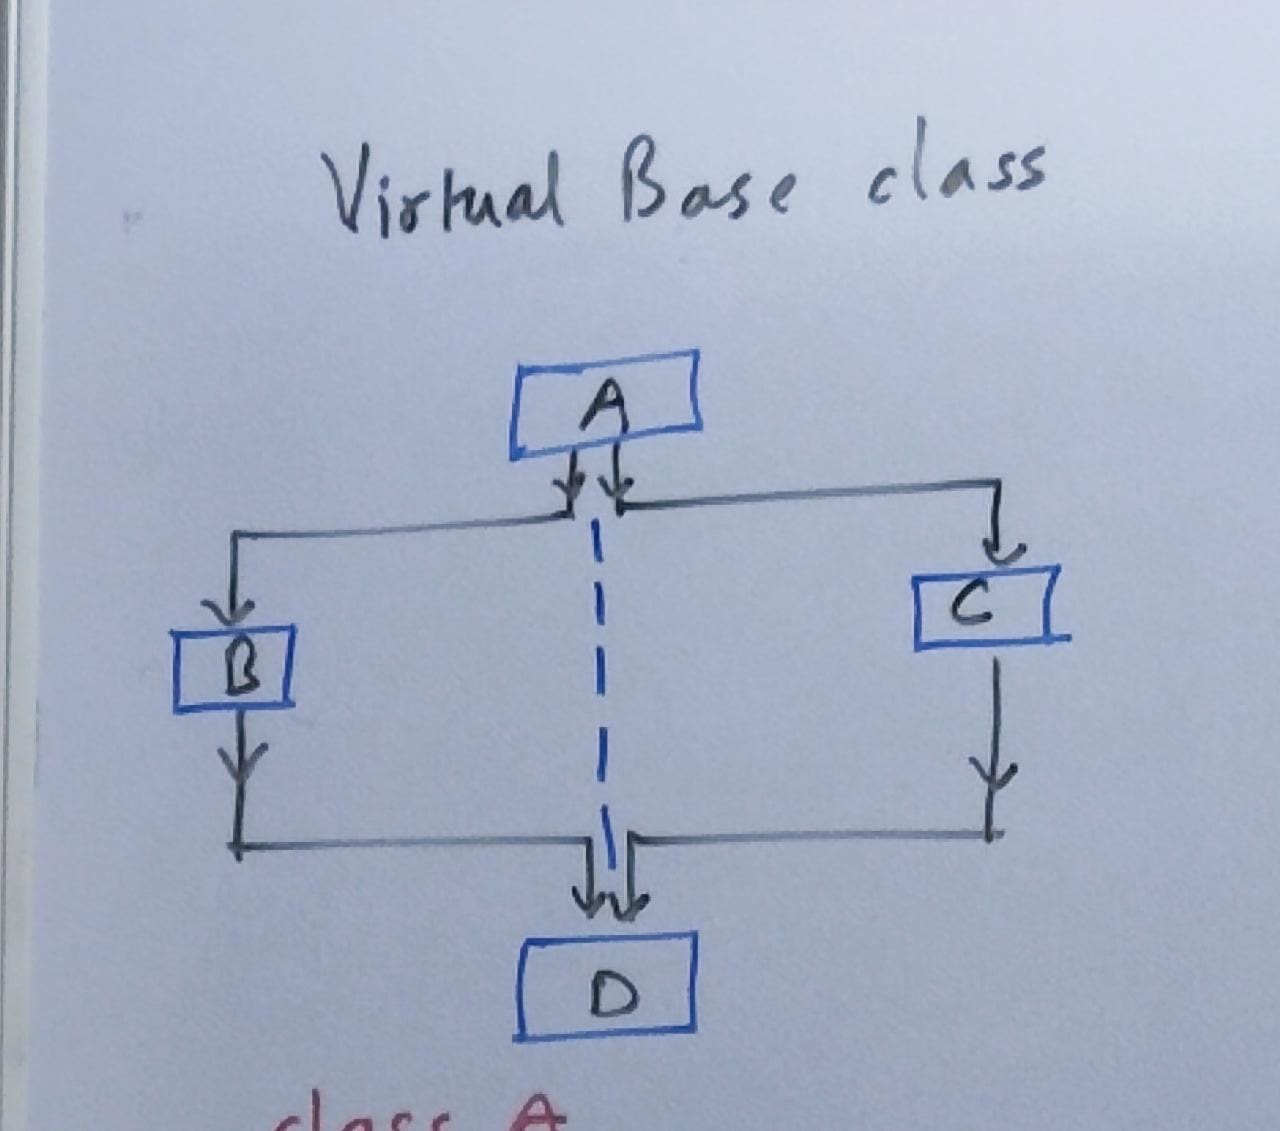 Virtual Base class
A
C
B
D
class A